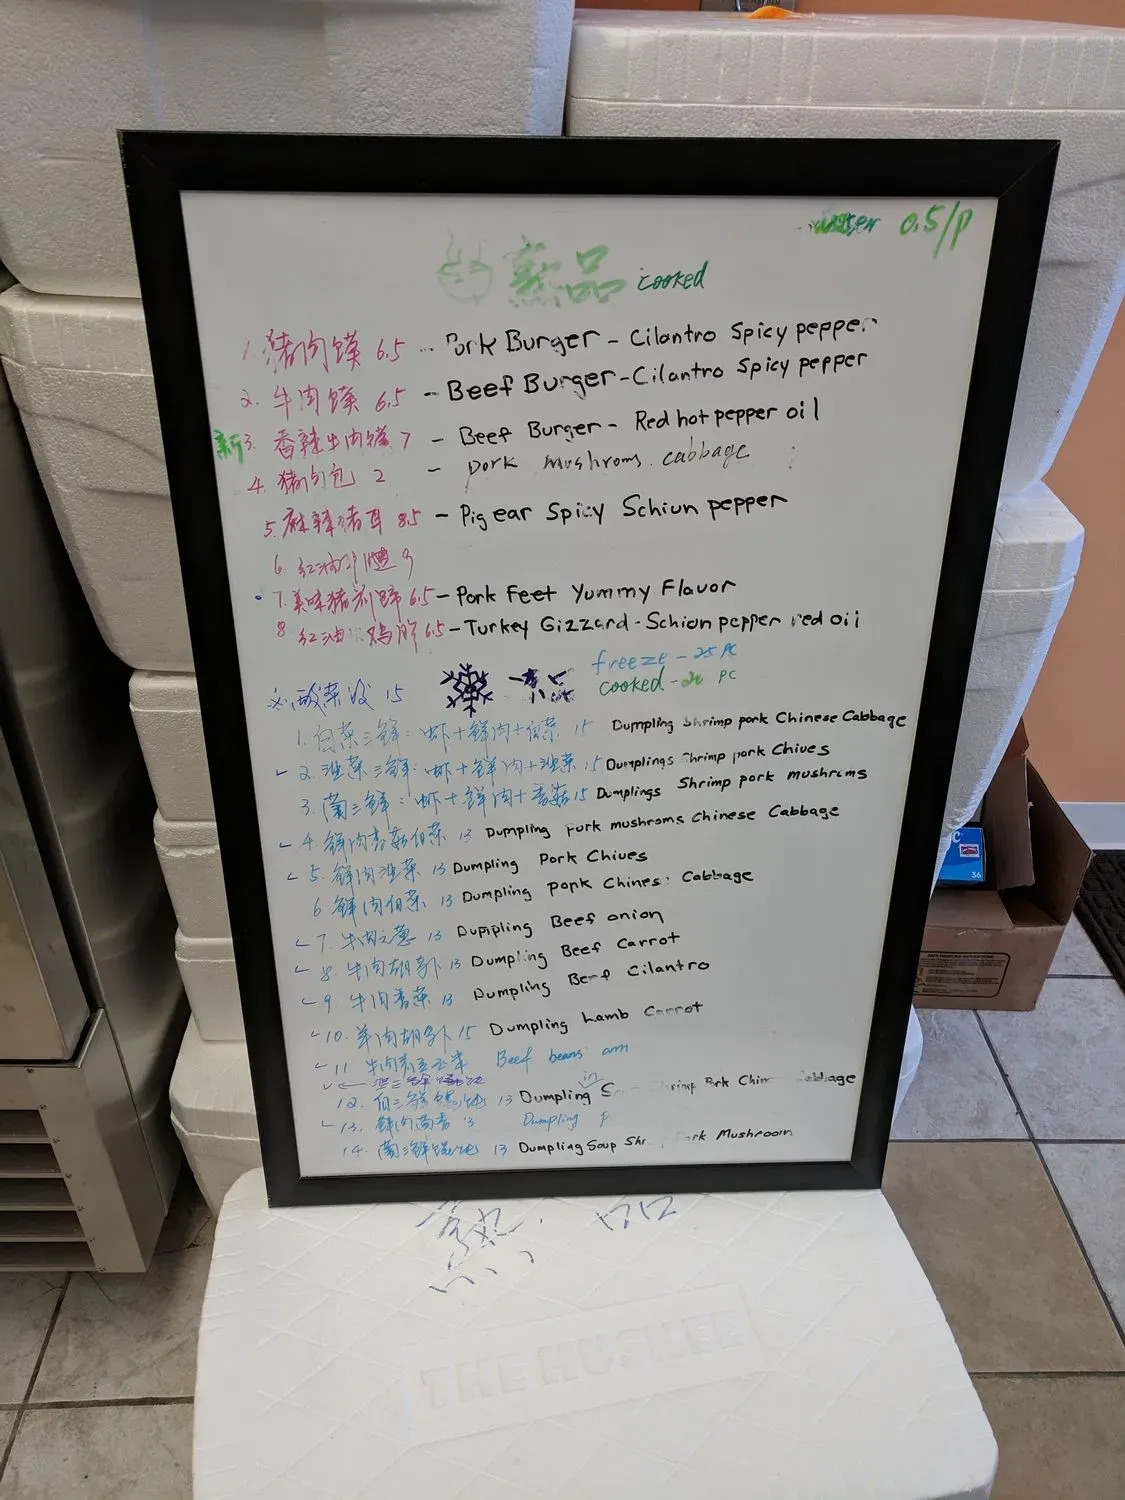 water 0.5/p
熟品 cooked
1. 猪肉馍 6.5 - Pork Burger - Cilantro Spicy pepper
2. 牛肉馍 6.5 - Beef Burger - Cilantro Spicy pepper
新 3. 香辣牛肉馍 7 - Beef Burger - Red hot pepper oil
4. 猪肉包 2 - pork mushroms. cabbage
5. 麻辣猪耳 8.5 - Pig ear Spicy Schiun pepper
6. 红油 9
7. 美味猪前蹄 6.5 - Pork Feet Yummy Flavor
8. 红油鸡胗 6.5 - Turkey Gizzard - Schiun pepper red oil
freeze - 25 pc
cooked - 20 pc
酸菜 15
1. 白菜三鲜: 虾+鲜肉+白菜 15 Dumpling Shrimp pork Chinese Cabbage
2. 韭菜三鲜: 虾+鲜肉+韭菜 15 Dumplings Shrimp pork Chives
3. 菌三鲜: 虾+鲜肉+香菇 15 Dumplings Shrimp pork mushrms
4. 鲜肉香菇白菜 13 Dumpling Pork mushroms Chinese Cabbage
5. 鲜肉韭菜 13 Dumpling Pork Chives
6. 鲜肉白菜 13 Dumpling pork Chines Cabbage
7. 牛肉大葱 13 Dumpling Beef onion
8. 牛肉胡萝卜 13 Dumpling Beef Carrot
9. 牛肉香菜 13 Dumpling Beef Cilantro
10. 羊肉胡萝卜 15 Dumpling Lamb Carrot
11 牛肉 Beef beans
12. 白三鲜馄饨 13 Dumpling in Shrimp Pork Cabbage
13. 鲜肉 13 Dumpling
14. 菌三鲜馄饨 13 Dumpling Soup Pork Mushroom
熟品
THE HUSKEE